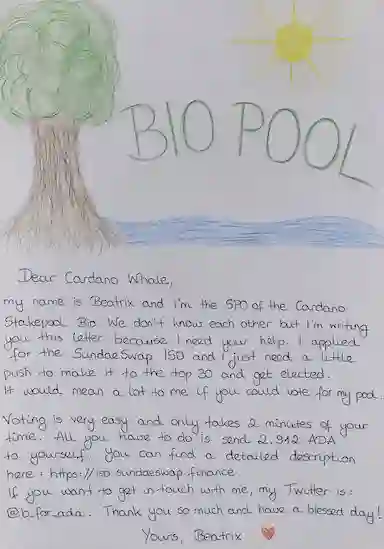 BIO POOL
Dear Cardano Whale,
my name is Beatrix and I'm the SPO of the Cardano
Stakepool Bio. We don't know each other but I'm writing
you this letter because I need your help. I applied
for the SundaeSwap ISO and I just need a little
push to make it to the top 30 and get elected.
It would mean a lot to me if you could vote for my pool.
Voting is very easy and only takes 2 minutes of your
time. All you have to do is send 2.912 ADA
to yourself. You can find a detailed description
here: https://iso.sundaeswap.finance.
If you want to get in touch with me, my Twitter is:
@b_for_ada. Thank you so much and have a blessed day!
Yours, Beatrix